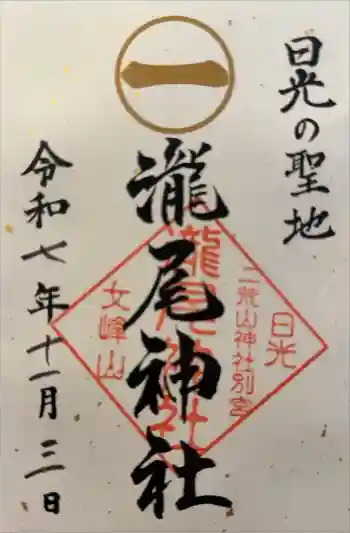 日光の聖地
一
瀧尾神社
日光
二荒山神社別宮
瀧尾神社
女峰山
令和七年十一月三日